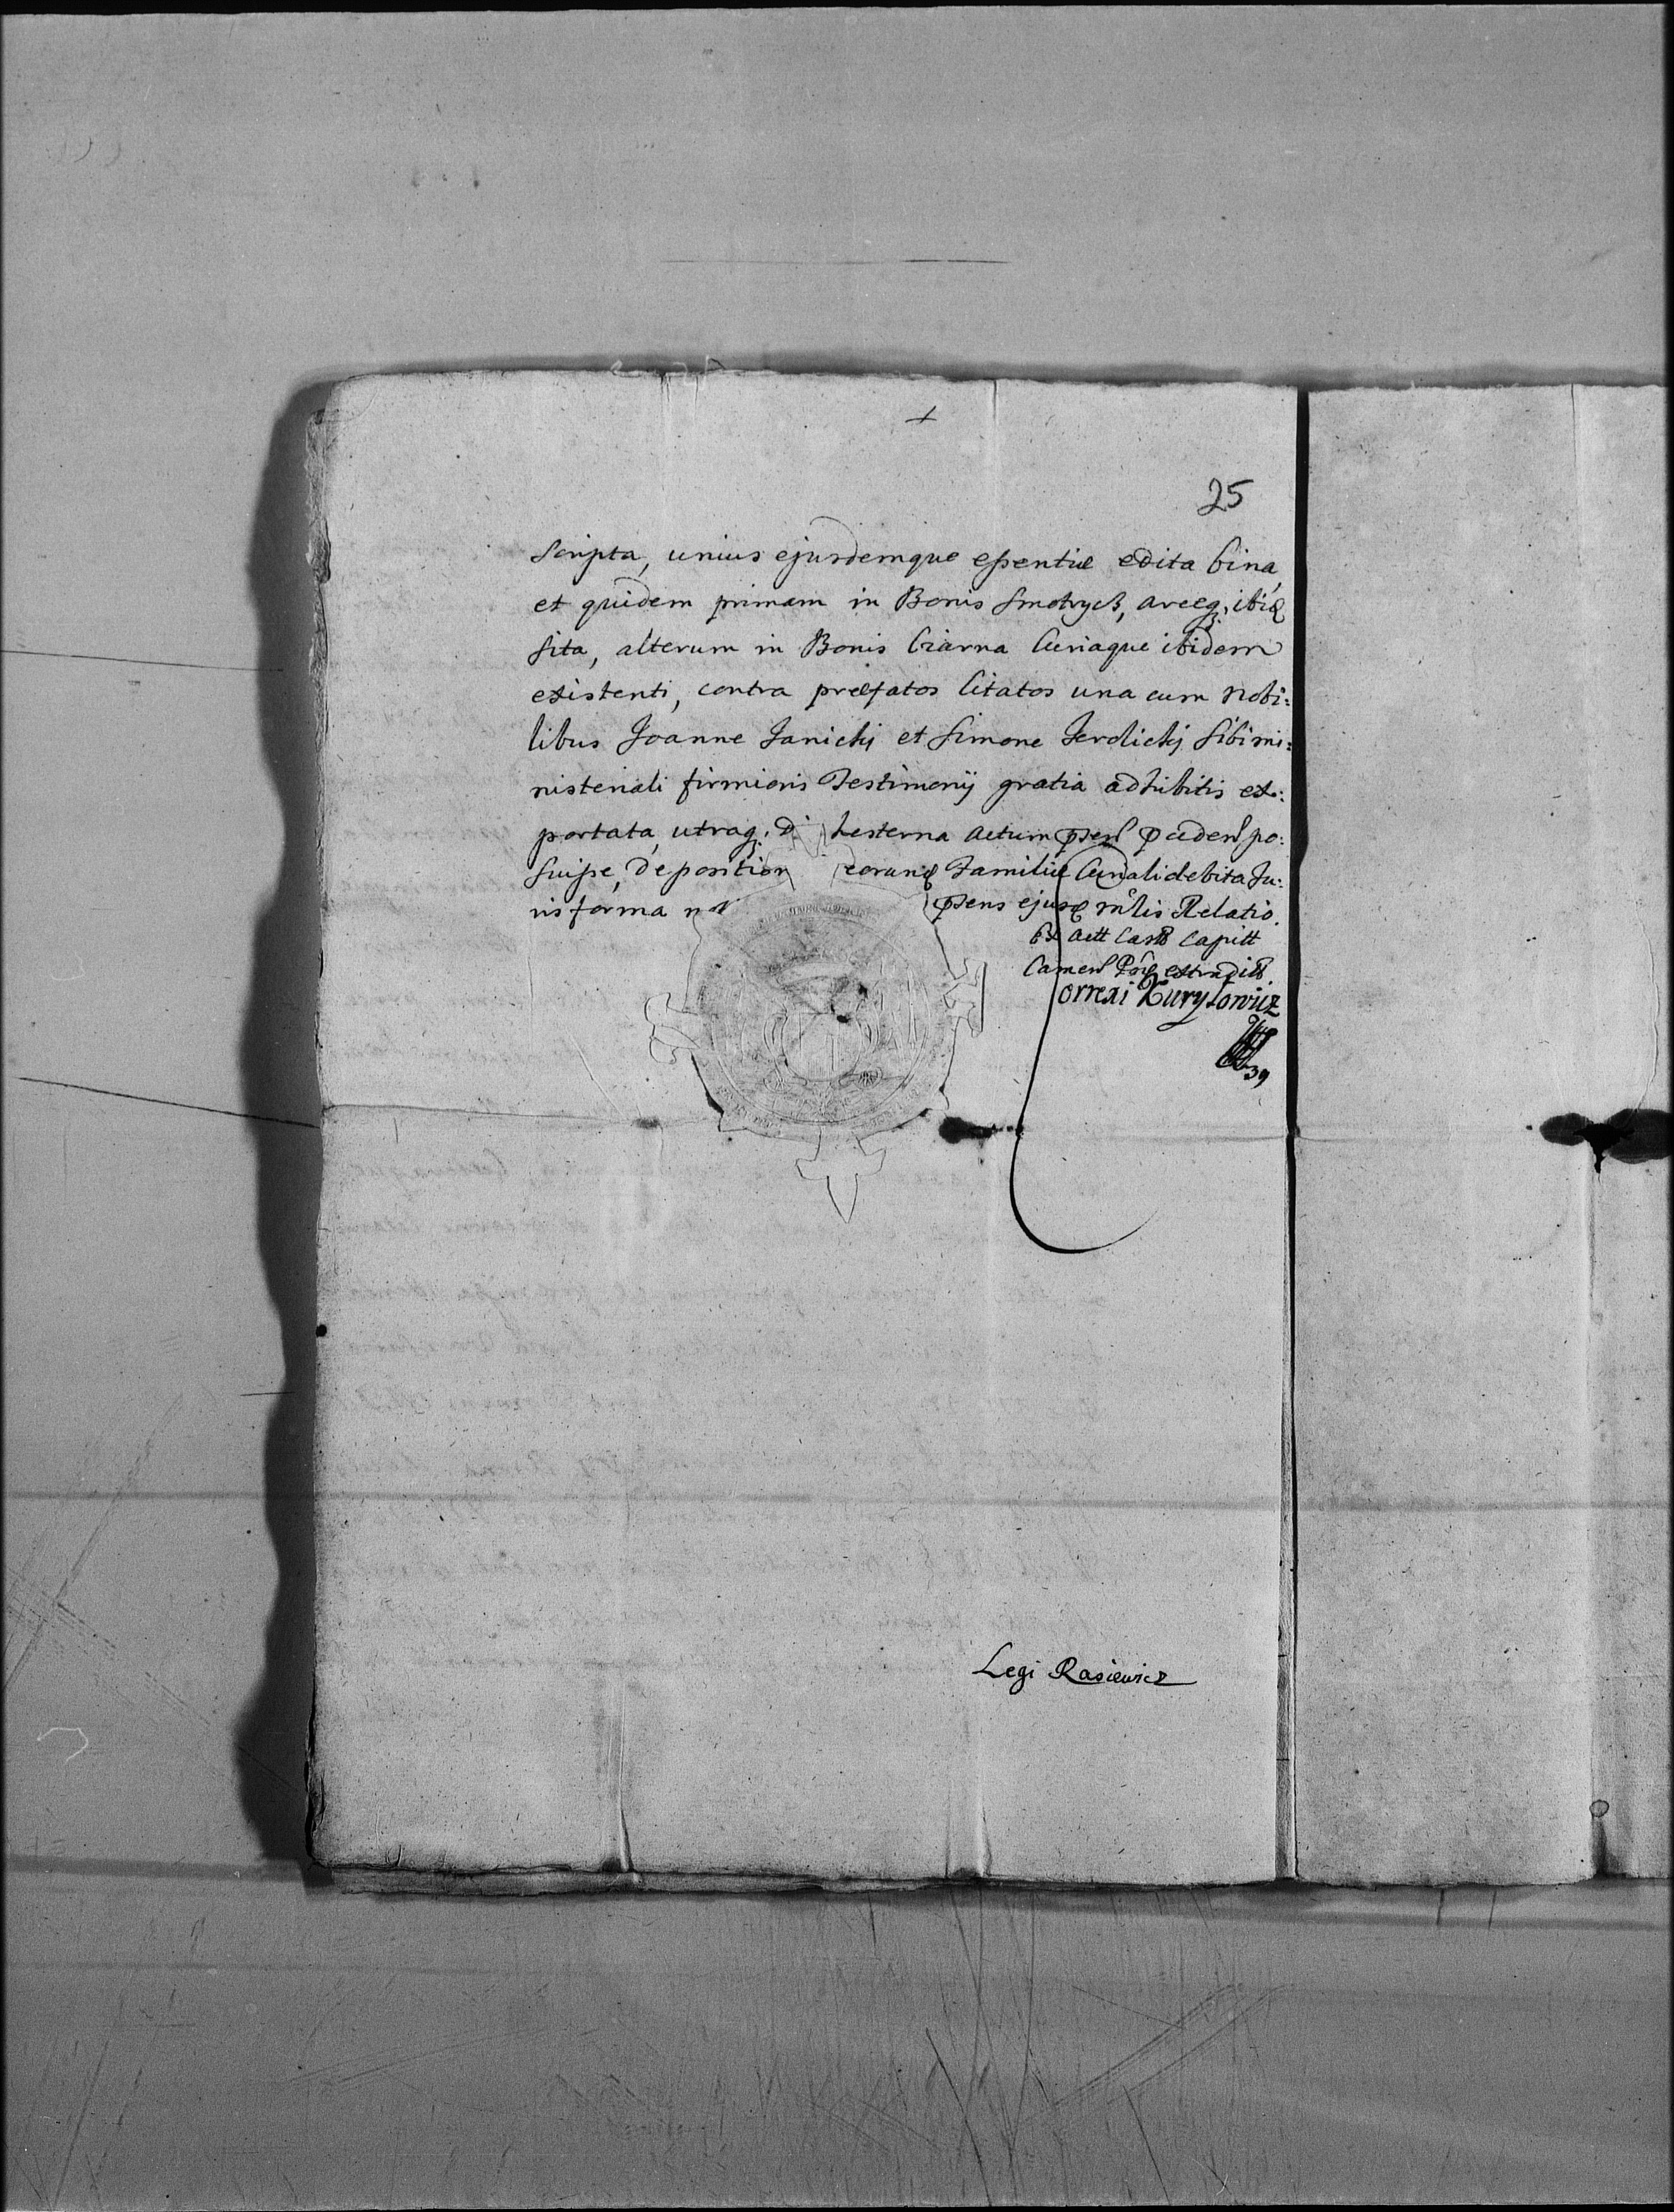 25
Scripta, unius ejusdemque essentiæ edita bina,
et quidem primum in Bonis Smotrycz, arceq; ibiq
sita, alterum in Bonis Czarna Curiaque ibidem
existenti, contra præfatos Citatos una cum Nobi:
libus Joanne Janicki et Simone Jerlicki sibi mi:
nisteriali firmioris Testimonij gratia adhibitis ex:
portata, utraq; hesterna Actum po:
suisse, de position eorunq Familiæ Curiali debita Ju:
ris forma ejusq Relatio.
Ex Actt Castr Capitt
Camen extradit
Correxi Kuryłowicz
39
Legi Rasiewicz